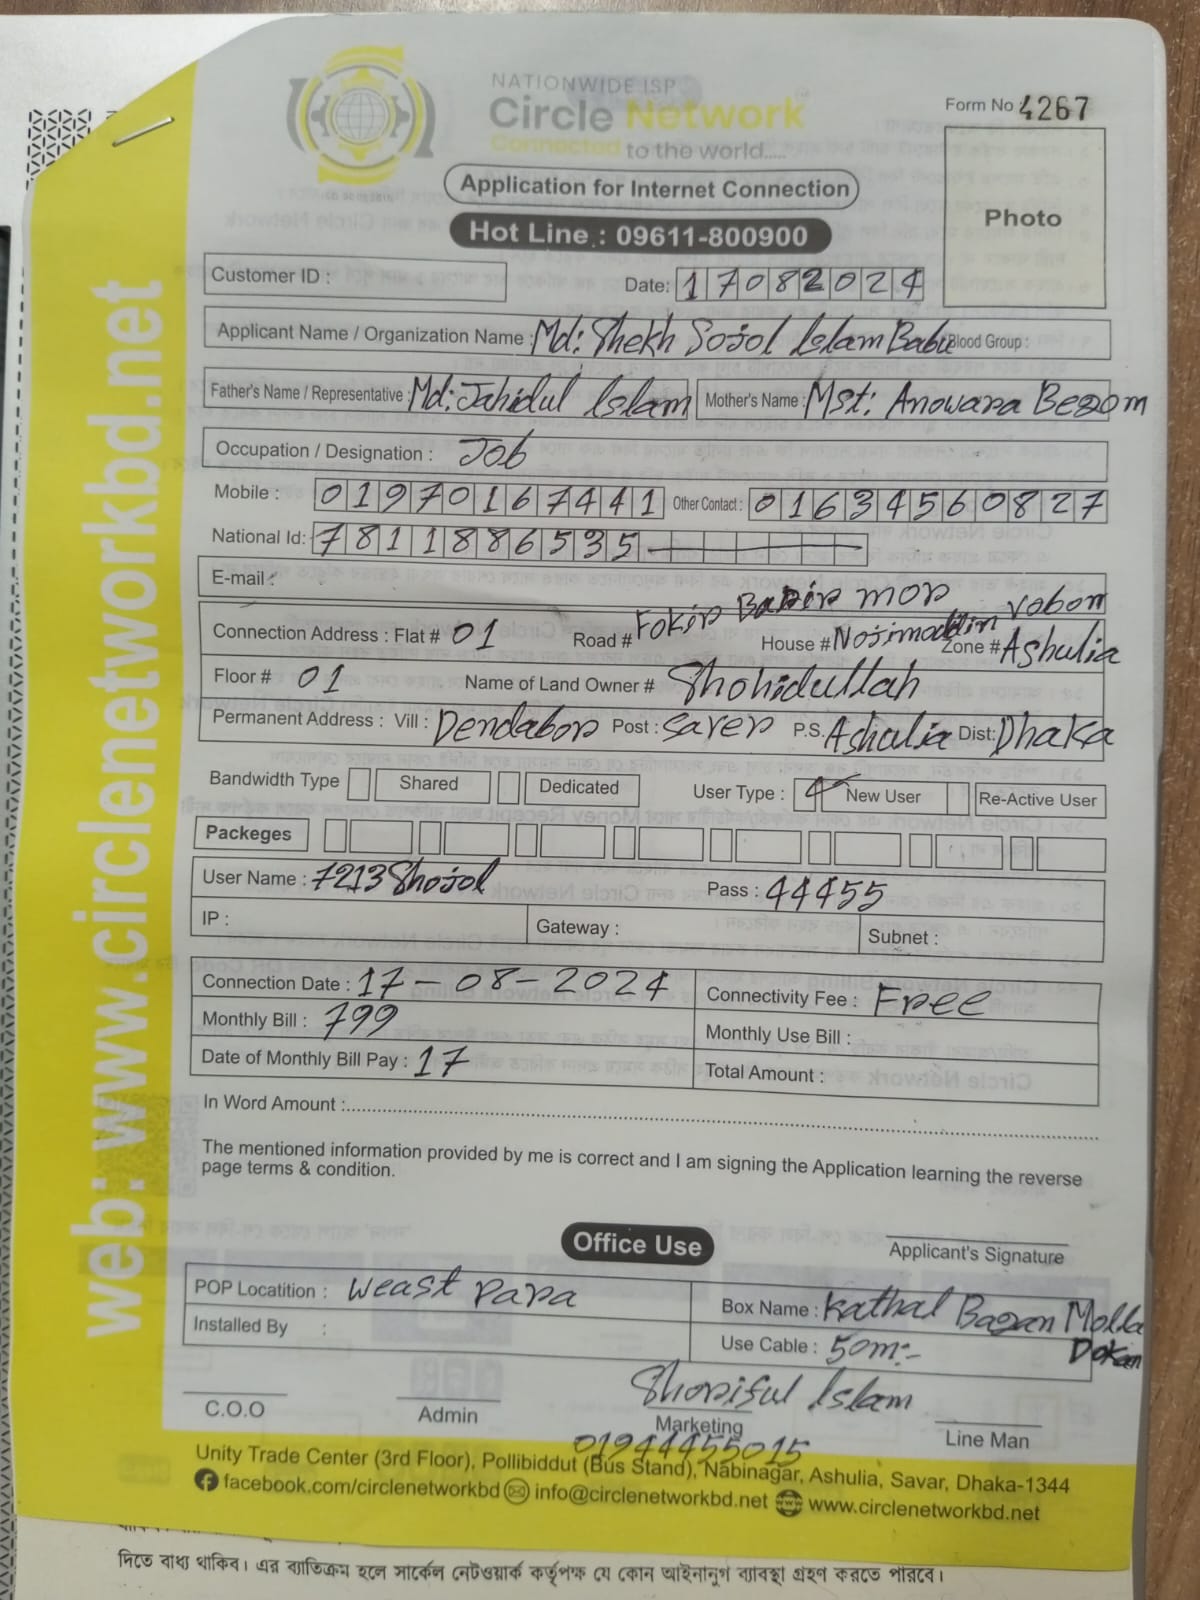 NATIONWIDE ISP
Circle Network
Connected to the world.....
Form No 4267
Application for Internet Connection
Photo
Hot Line : 09611-800900
Customer ID :
Date: 17082024
Applicant Name / Organization Name : Md: Shekh Sojol Islam Babu Blood Group :
Father's Name / Representative : Md: Jahidul Islam Mother's Name : Mst: Anowara Begom
Occupation / Designation : Job
Mobile : 01970167441 Other Contact : 01634560827
National Id: 7811886535
E-mail :
Connection Address : Flat # 01 Road # Fokir Barir mor House # Nojimoddin vobon Zone # Ashulia
Floor # 01 Name of Land Owner # Shohidullah
Permanent Address : Vill : Dendabor Post : saver P.S. Ashulia Dist: Dhaka
Bandwidth Type Shared Dedicated User Type : New User Re-Active User
Packeges
User Name : 7213Shojol Pass : 44455
IP : Gateway : Subnet :
Connection Date : 17-08-2024 Connectivity Fee : Free
Monthly Bill : 799 Monthly Use Bill :
Date of Monthly Bill Pay : 17 Total Amount :
In Word Amount :
The mentioned information provided by me is correct and I am signing the Application learning the reverse
page terms & condition.
Applicant's Signature
Office Use
POP Locatition : weast para Box Name : Kathal Bagan Molla Dokan
Installed By : Use Cable : 50m:-
Shoriful Islam
C.O.O Admin Marketing Line Man
01944455015
Unity Trade Center (3rd Floor), Pollibiddut (Bus Stand), Nabinagar, Ashulia, Savar, Dhaka-1344
facebook.com/circlenetworkbd info@circlenetworkbd.net www.circlenetworkbd.net
web: www.circlenetworkbd.net
দিতে বাধ্য থাকিব। এর ব্যাতিক্রম হলে সার্কেল নেটওয়ার্ক কর্তৃপক্ষ যে কোন আইনানুগ ব্যাবস্থা গ্রহণ করতে পারবে।